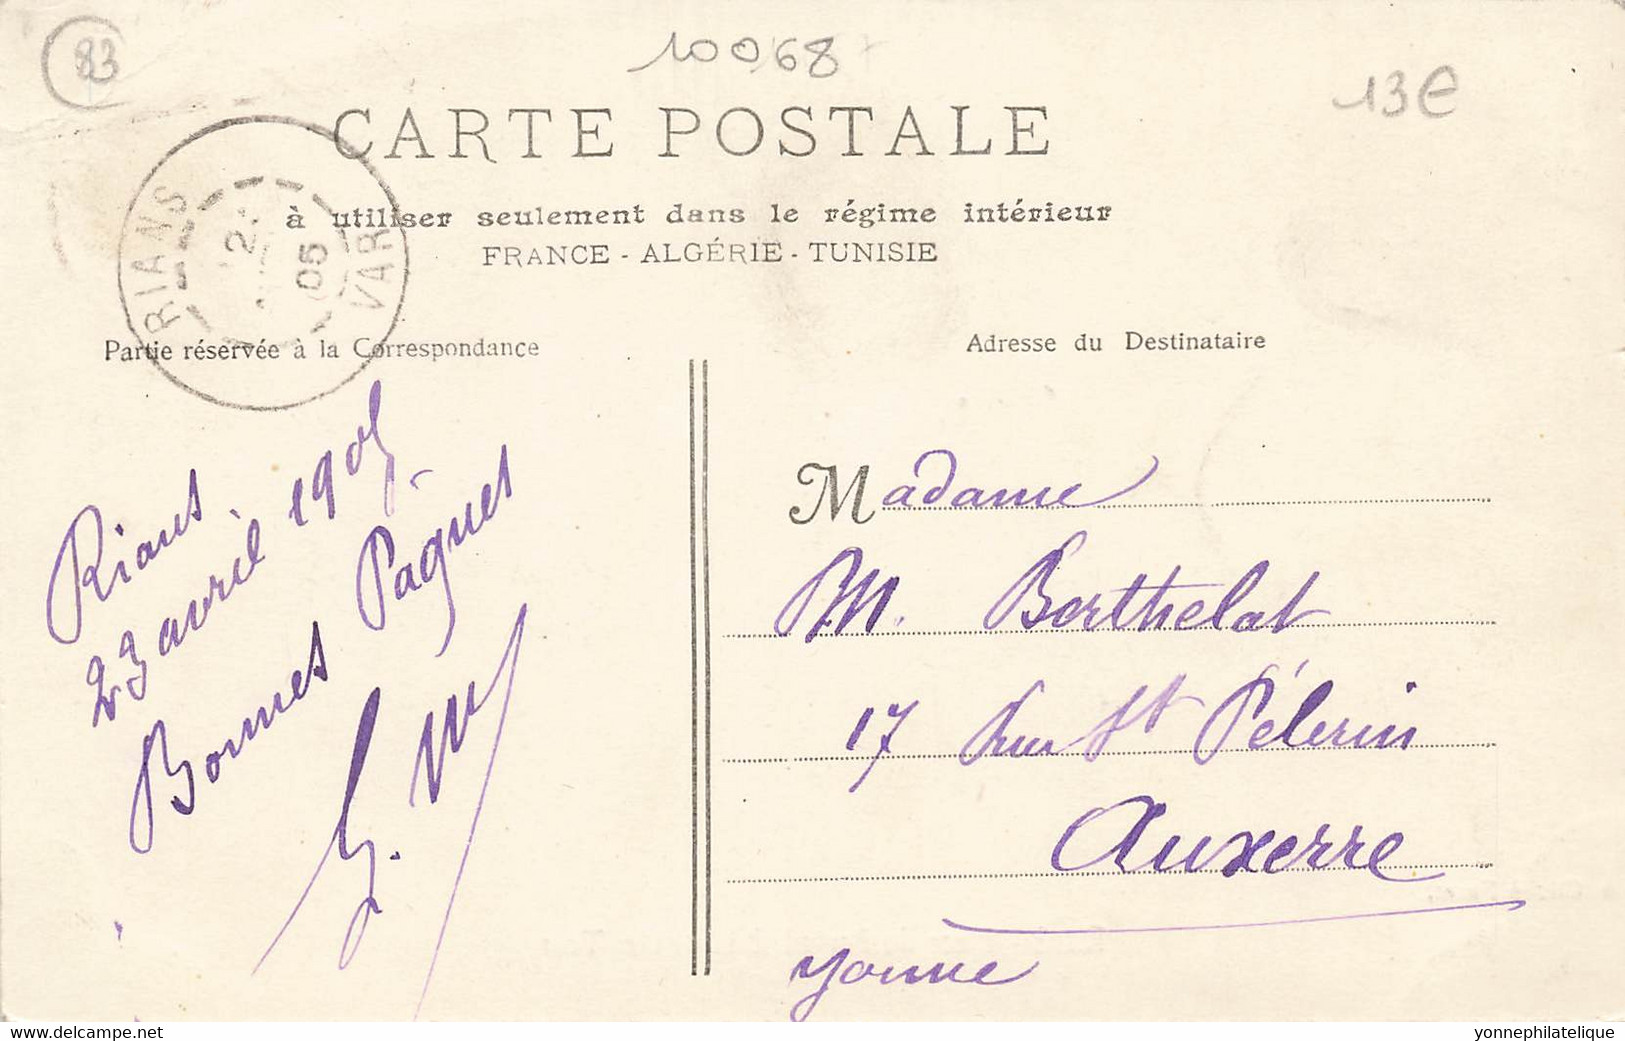 83
10068
13€
CARTE POSTALE
à utiliser seulement dans le régime intérieur
FRANCE - ALGÉRIE - TUNISIE
RIANS
05
VAR
Partie réservée à la Correspondance
Adresse du Destinataire
Rians
23 avril 1905
Bonnes Paques
G.
Madame
M. Berthelat
17 Rue St Pélerin
Auxerre
Yonne
www.delcampe.net
yonnephilatelique